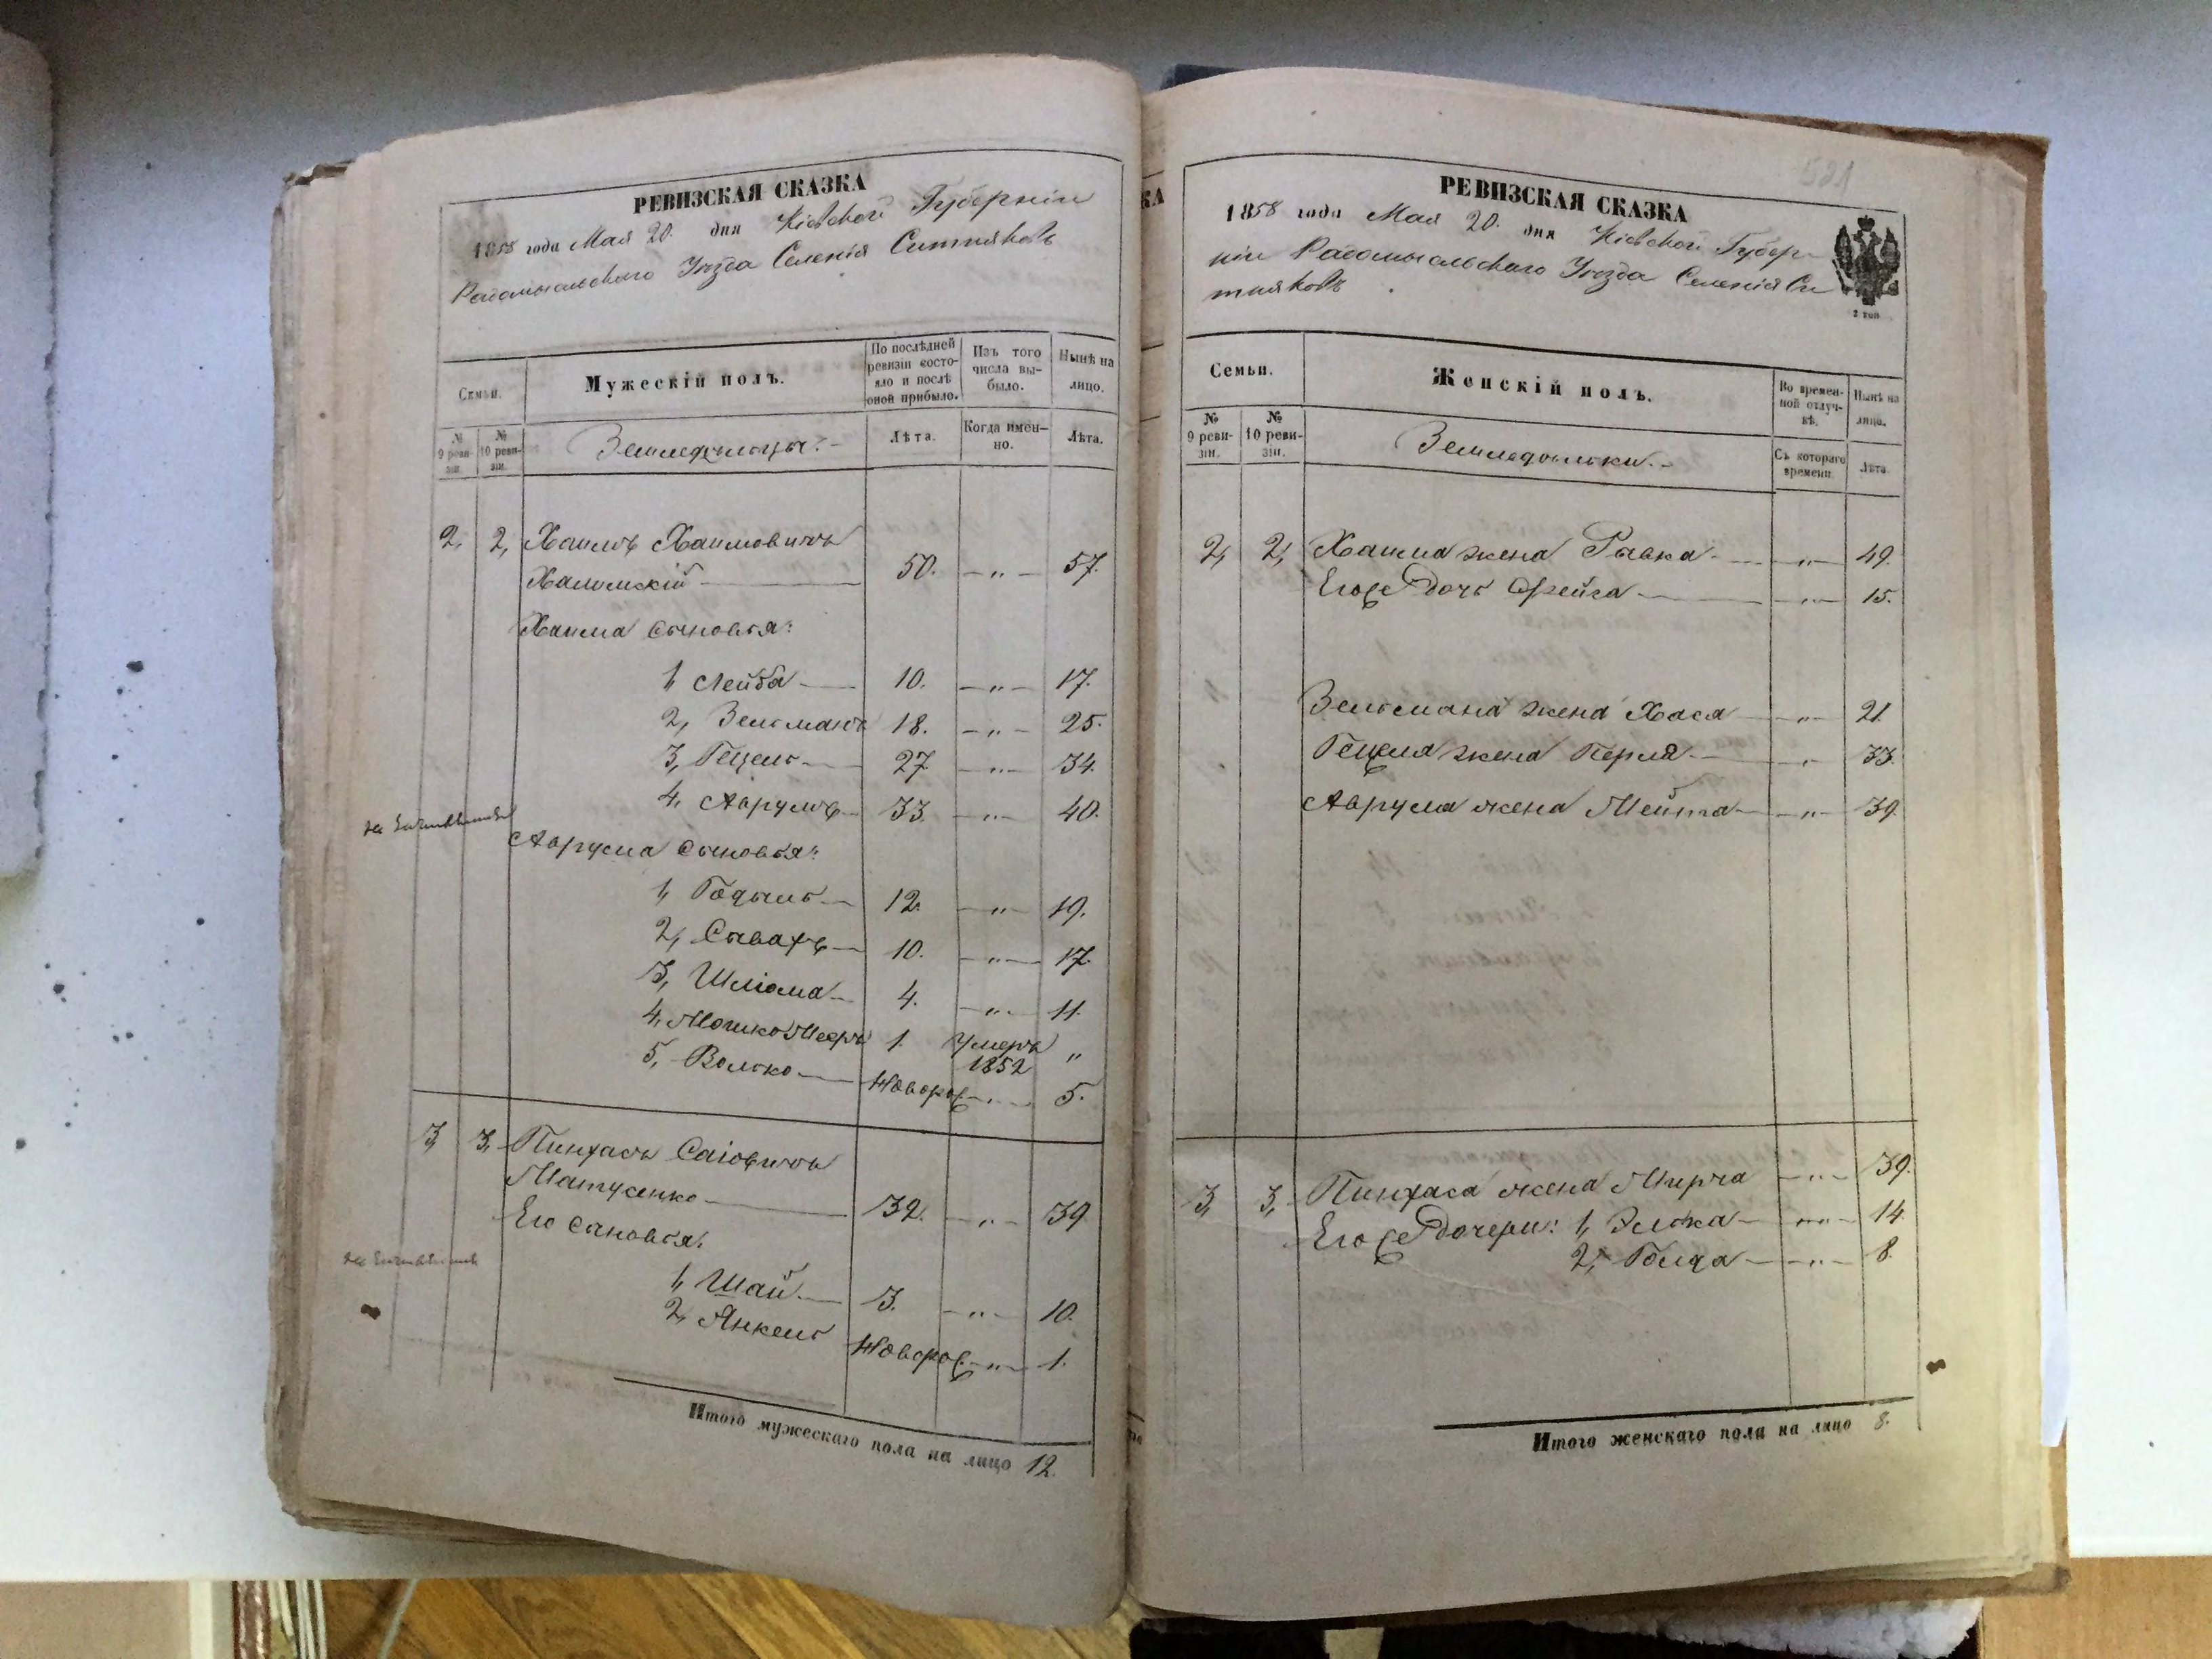 РЕВИЗСКАЯ СКАЗКА
1858 года Мая 20. дня Кіевской Губерніи
Радомысльскаго Уѣзда Селенія Ситняковъ
Семьи.
Мужескій полъ.
По послѣдней ревизіи состояло и послѣ оной прибыло.
Изъ того числа выбыло.
Нынѣ на лицо.
№ 9 ревизіи.
№ 10 ревизіи.
Земледѣльцы:
Лѣта.
Когда именно.
Лѣта.
2, 2, Хаимъ Хаимовичъ
Халемскій 50. „ 57.
Хаима сыновья:
1, Лейба 10. „ 17.
2, Зельманъ 18. „ 25.
3, Гецель 27. „ 34.
4, Аврумъ 33. „ 40.
Аврума сыновья:
1, Годыль 12. „ 19.
2, Сывахъ 10. „ 17.
3, Шліома 4. „ 11.
4, Мошко Мееръ 1. Умеръ 1852 „
5, Волько Новорož „ 5.
3, 3, Пинхасъ Саіовичъ
Матусенко 32. „ 39
Его сыновья:
1, Шай 3. „ 10.
2, Янкель Новорож. „ 1.
Итого мужескаго пола на лицо 12.
521
РЕВИЗСКАЯ СКАЗКА
1858 года Мая 20. дня Кіевской Губер-
ніи Радомысльскаго Уѣзда Селенія Си
тняковъ
Семьи.
Женскій полъ.
Во временной отлучкѣ.
Нынѣ на лицо.
№ 9 ревизіи.
№ 10 ревизіи.
Земледѣлки.
Съ котораго времени.
Лѣта.
2, 2, Хаима жена Рывка „ 49.
Его дочь Фейга „ 15.
Зельмана жена Хася „ 21.
Гецеля жена Перля „ 33.
Аврума жена Мейта „ 39.
3, 3, Пинхаса жена Мирча „ 39.
Его дочери: 1, Элька „ 14.
2, Голда „ 8.
Итого женскаго пола на лицо 8.